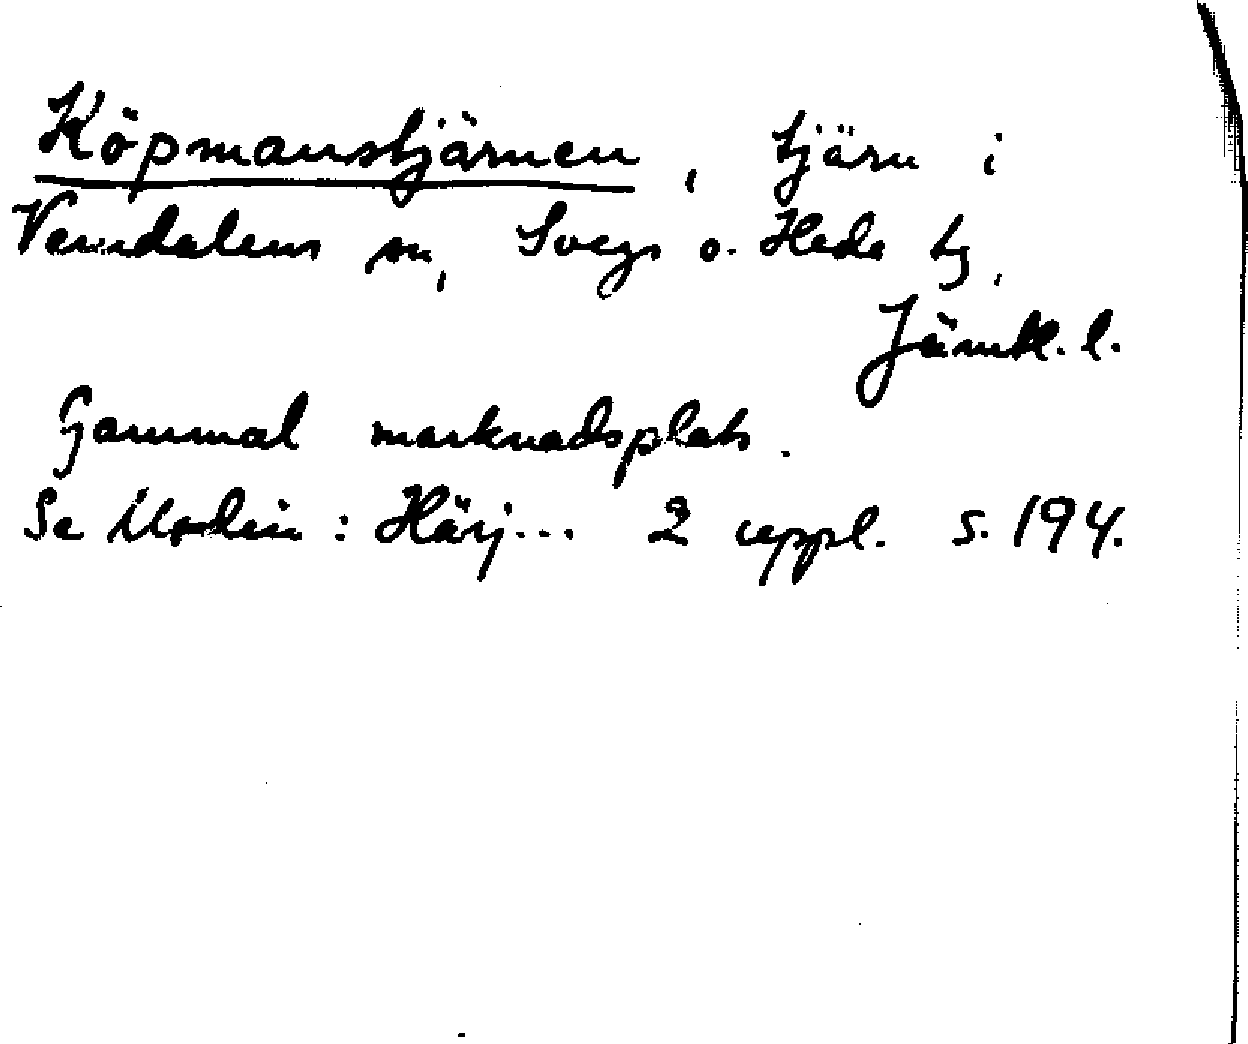 Köpmanstjärnen, tjärn i
Vemdalens sn, Svegs o. Hede tg,
Jämtl. l.
Gammal marknadsplats.
Se Modin: Härj... 2 uppl. s. 194.